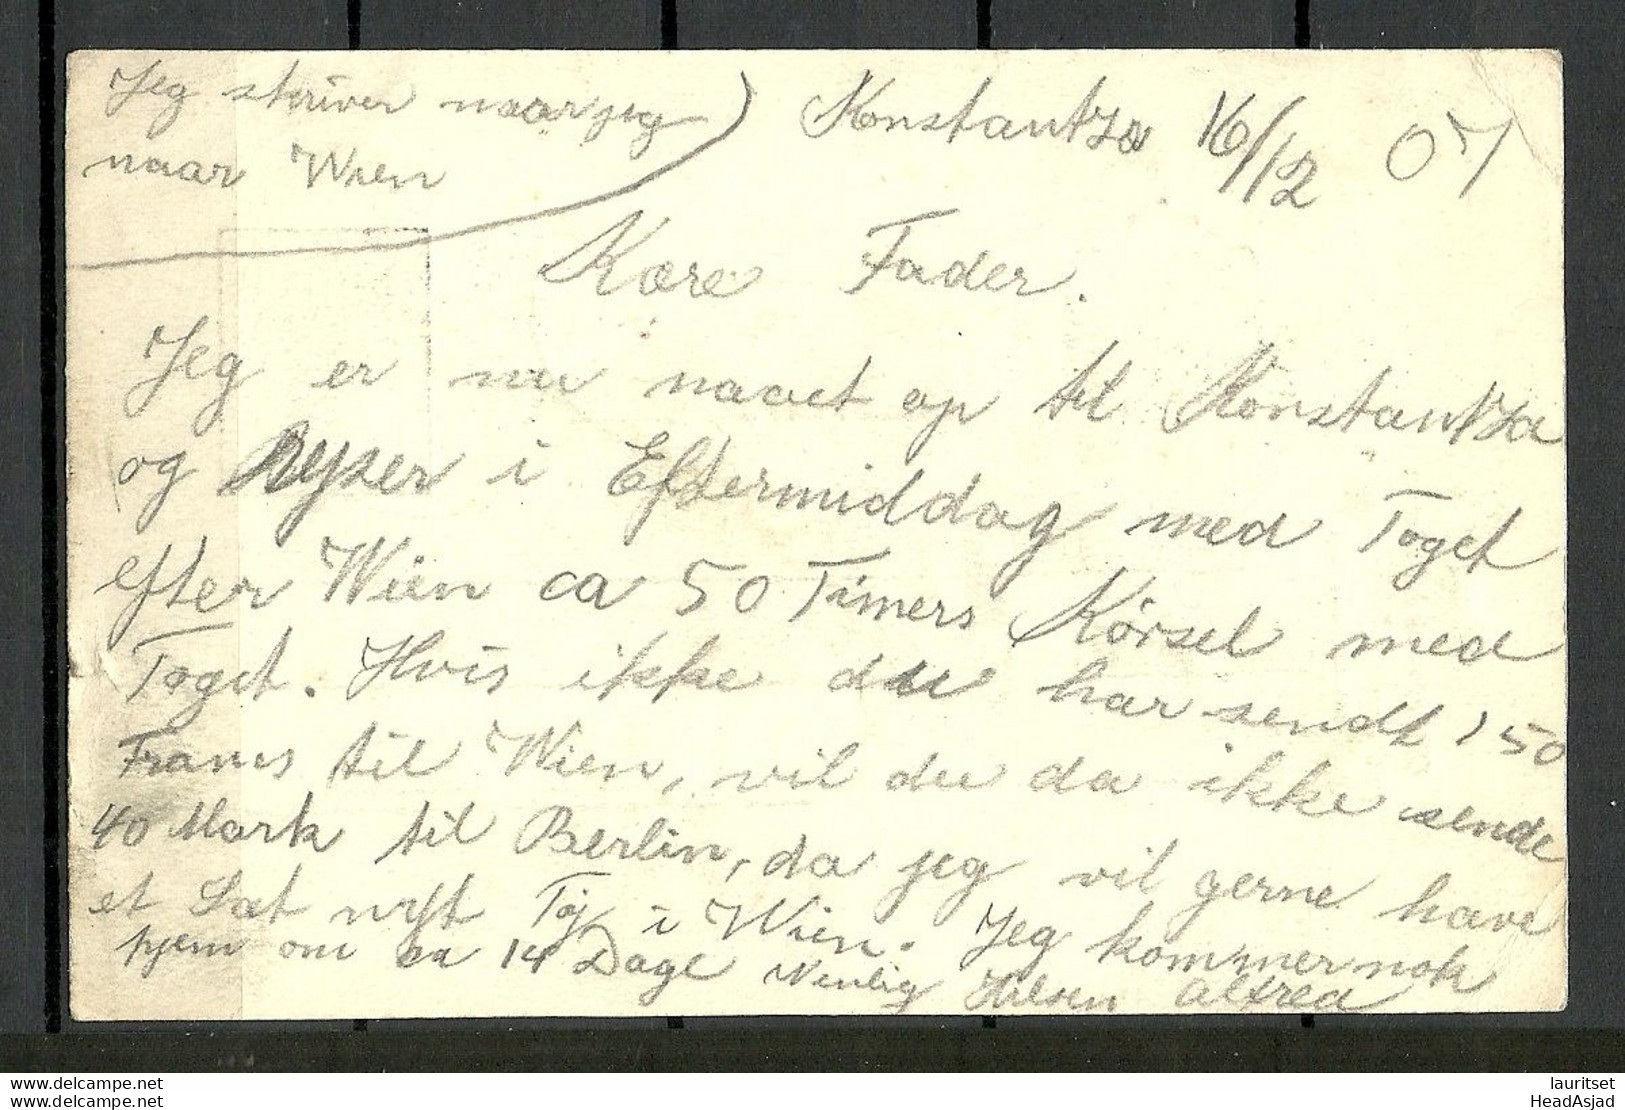 Jeg skriver naar jeg
naar Wien
Konstantza 16/12 07
Kære Fader.
Jeg er nu naaet op til Konstantza
og Rejser i Eftermiddag med Toget
efter Wien ca 50 Timers Kørsel med
Toget. Hvis ikke du har sendt 150
Francs til Wien, vil du da ikke sende
40 Mark til Berlin, da jeg vil gerne have
et Sæt nyt Tøj i Wien. Jeg kommer nok
hjem om ca 14 Dage Venlig Hilsen Alfred
www.delcampe.net
www.delcampe.net
lauritset
HeadAsjad